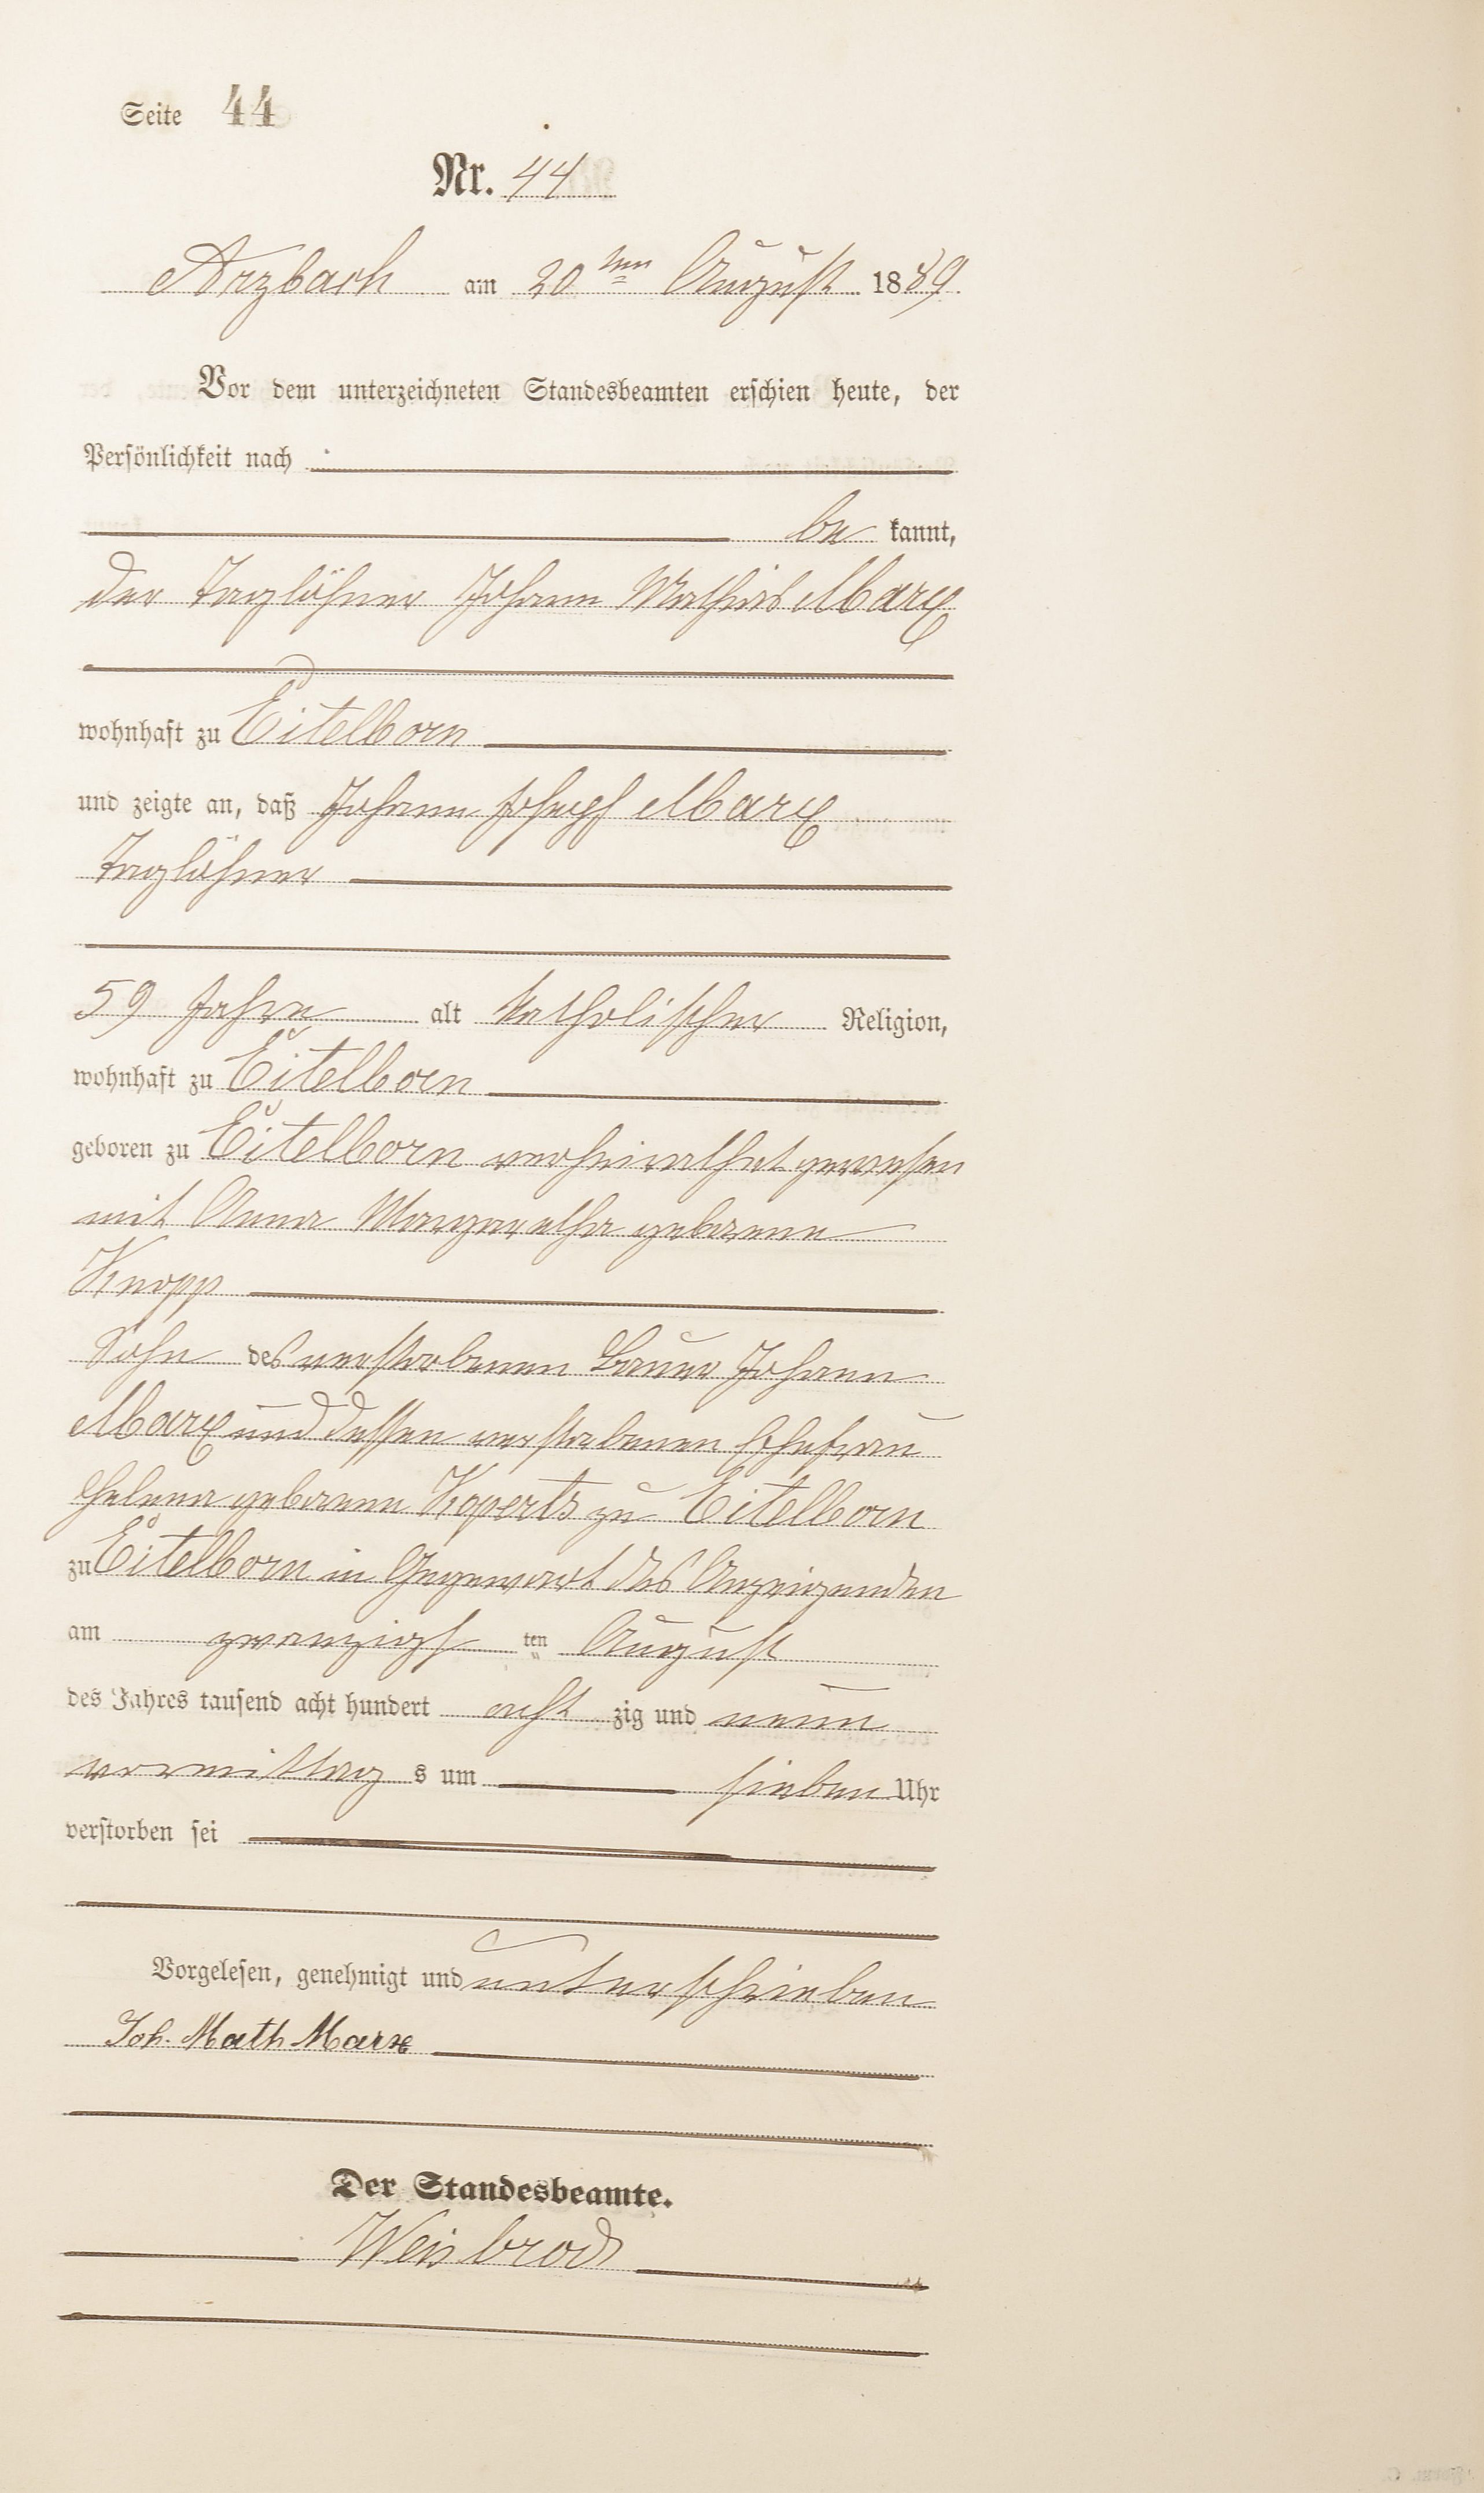 Seite 44
Nr. 44
Arzbach am 20ten August 1889.
Vor dem unterzeichneten Standesbeamten erschien heute, der
Persönlichkeit nach
be kannt,
der Taglöhner Johann Mathias Marx
wohnhaft zu Eitelborn
und zeigte an, daß Johann Joseph Marx
Taglöhner
59 Jahre alt katholischer Religion,
wohnhaft zu Eitelborn
geboren zu Eitelborn verheirathet gewesen
mit Anna Margaretha geborene
Knopp
Sohn des verstorbenen Bauer Johann
Marx und dessen verstorbenen Ehefrau
Helena geborene Koperts zu Eitelborn
zu Eitelborn in Gegenwart des Anzeigenden
am zwanzigsten August
des Jahres tausend acht hundert acht zig und neun
vormittag s um sieben Uhr
verstorben sei
Vorgelesen, genehmigt und unterschrieben
Joh. Math Marx
Der Standesbeamte.
Weisbrod